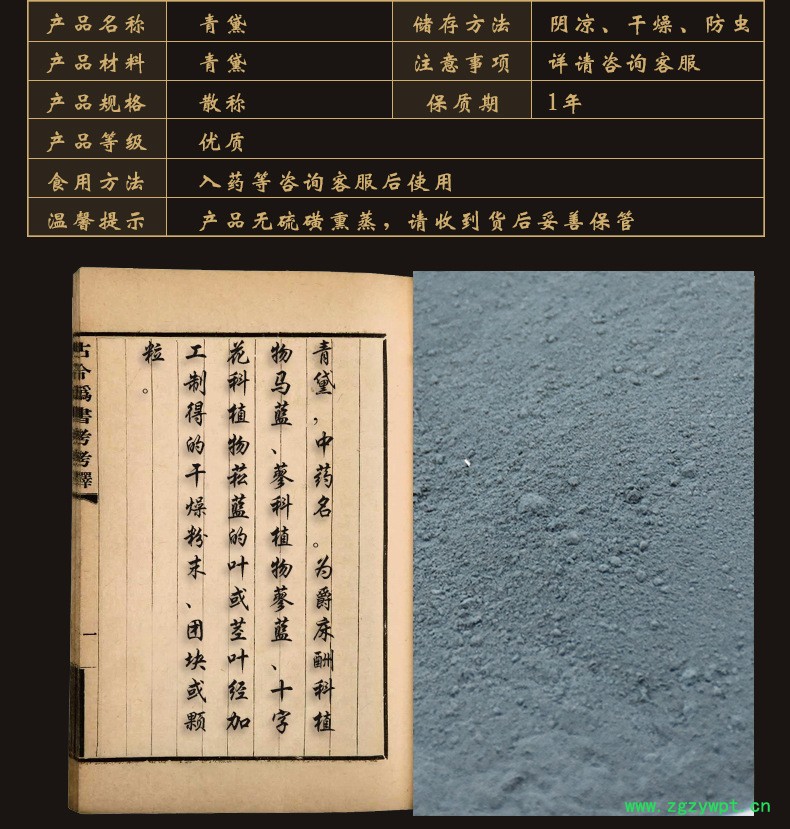 产品名称 青黛 储存方法 阴凉、干燥、防虫
产品材料 青黛 注意事项 详请咨询客服
产品规格 散称 保质期 1年
产品等级 优质
食用方法 入药等咨询客服后使用
温馨提示 产品无硫磺熏蒸，请收到货后妥善保管
青黛，中药名。为爵床酬科植
物马蓝、蓼科植物蓼蓝、十字
花科植物菘蓝的叶或茎叶经加
工制得的干燥粉末、团块或颗
粒。
古今偽書考考釋
一
www.zgzywpt.cn